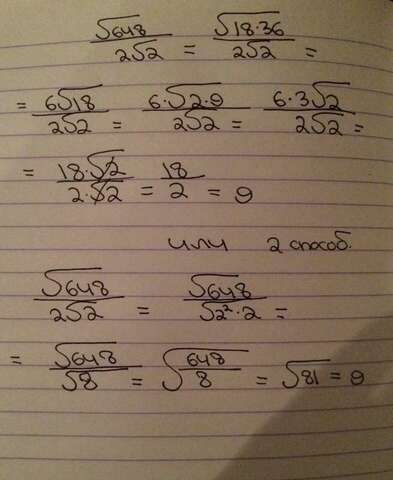 √648/2√2 = √18·36/2√2 =
= 6√18/2√2 = 6·√2·9/2√2 = 6·3√2/2√2 =
= 18·√2/2·√2 = 18/2 = 9
или 2 способ.
√648/2√2 = √648/√2²·2 =
= √648/√8 = √648/8 = √81 = 9